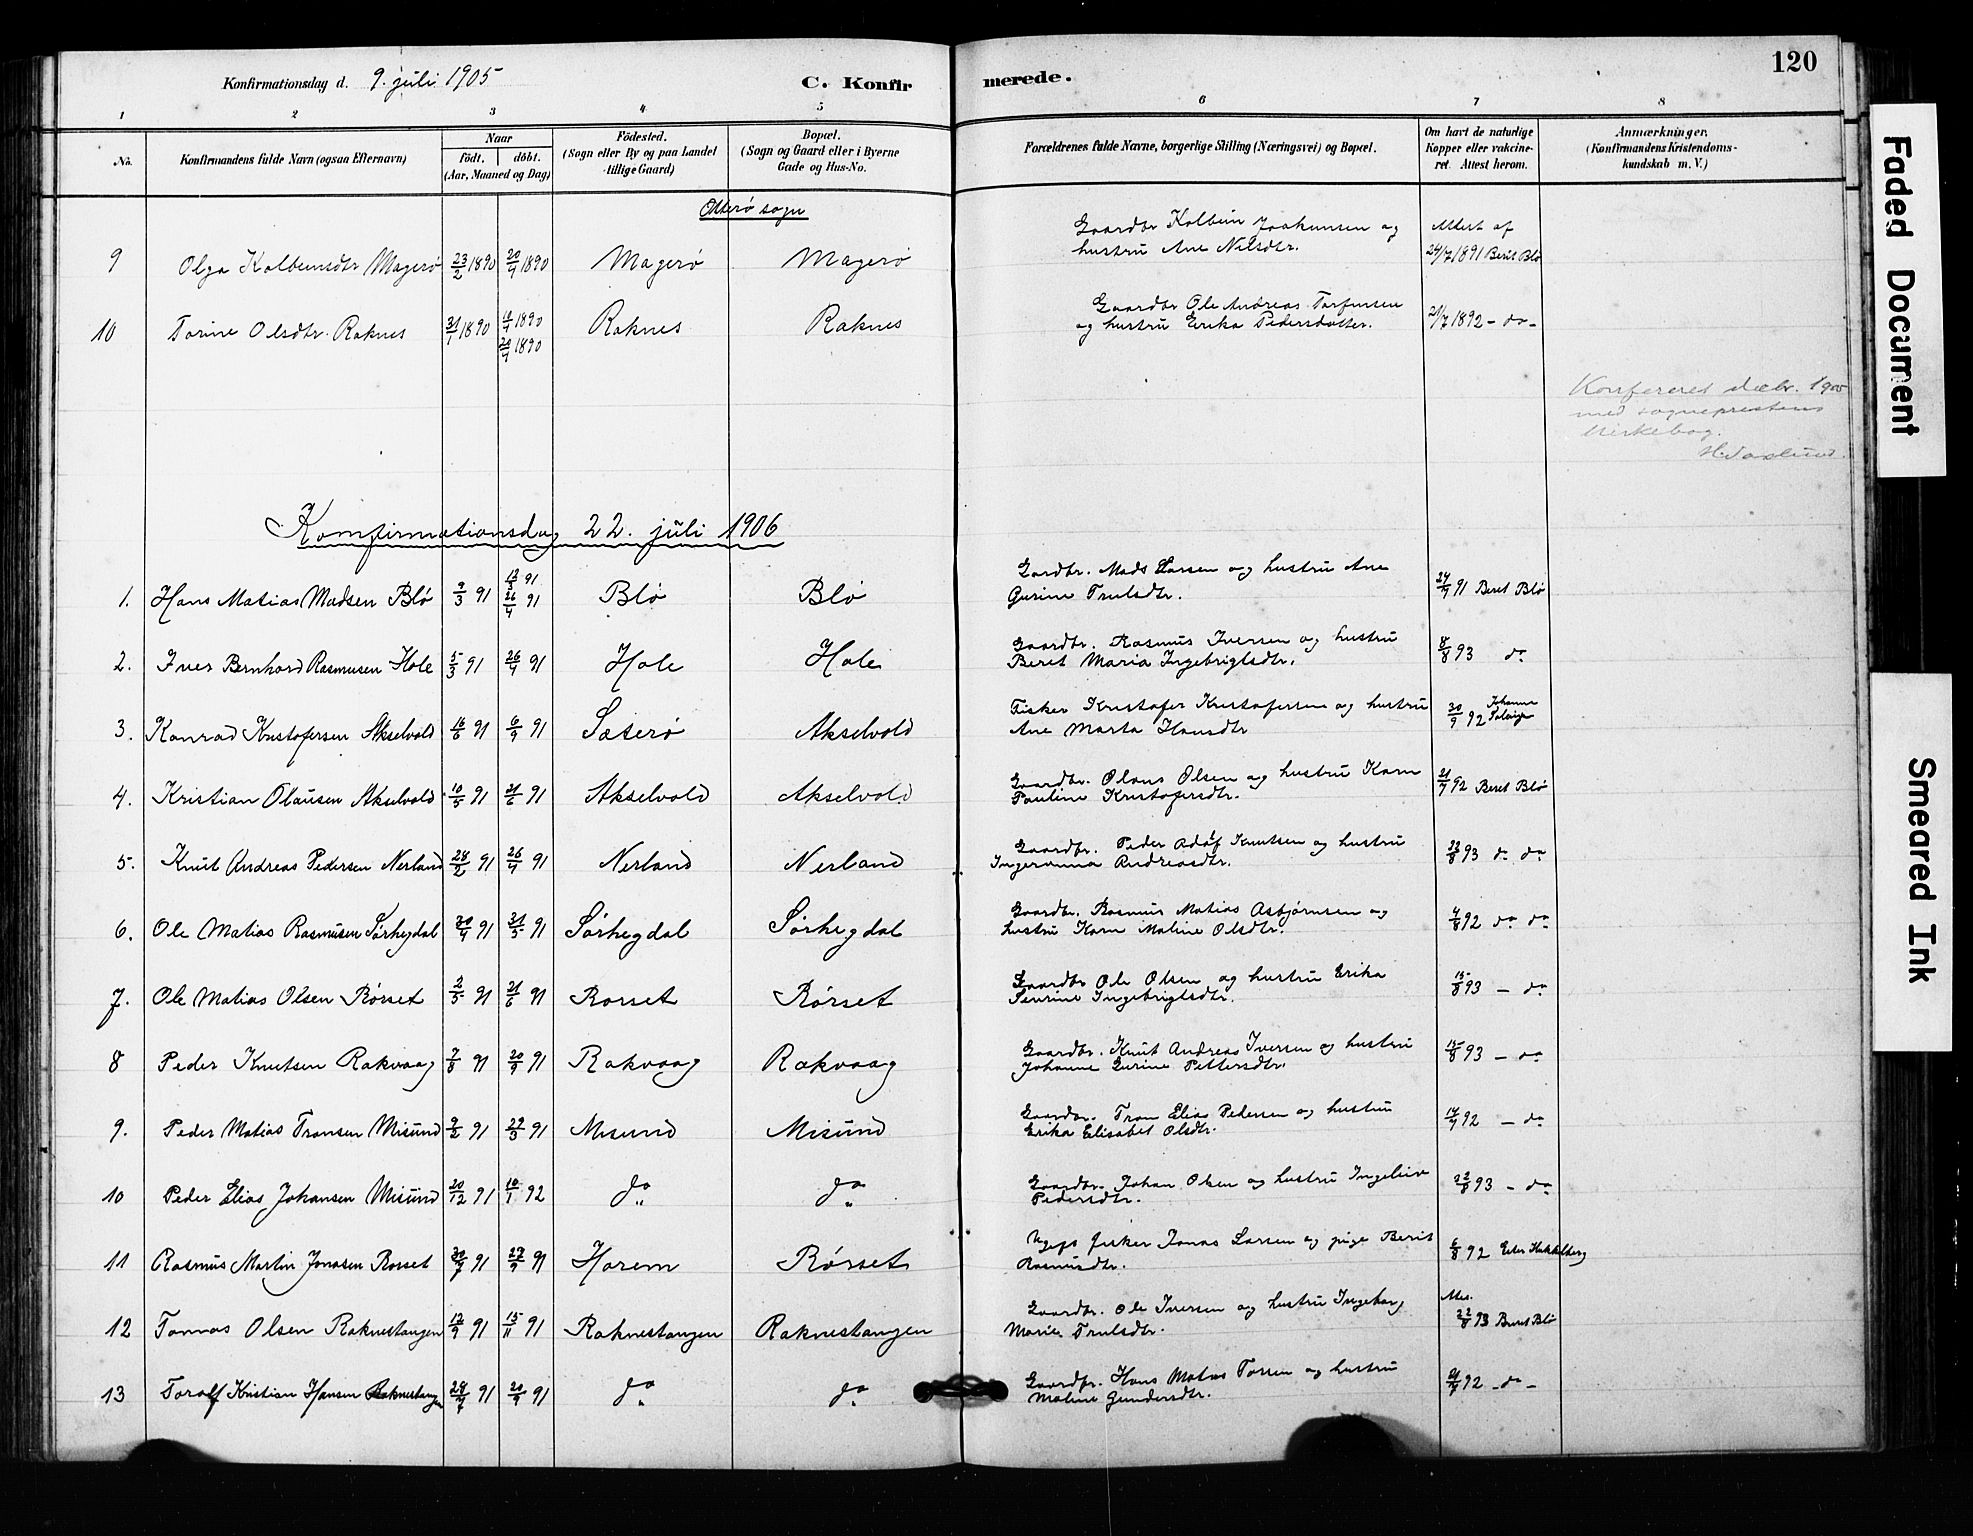 120
Konfirmationsdag d. 9. juli 1905
C. Konfirmerede.
1 2 3 4 5 6 7 8
No.
Konfirmandens fulde Navn (ogsaa Efternavn)
Naar
födt. döbt.
(Aar, Maaned og Dag)
Födested.
(Sogn eller By og paa Landet
tillige Gaard)
Bopæl.
(Sogn og Gaard eller i Byerne
Gade og Hus-No.
Forældrenes fulde Navne, borgerlige Stilling (Næringsvei) og Bopæl.
Om havt de naturlige
Kopper eller vakcine-
ret. Attest herom.
Anmærkninger.
(Konfirmandens Kristendoms-
kundskab m. V.)
Otterö sogn
9 Olga Kolbeinsdtr Magerö 23/2 1890 20/4 1890 Magerö Magerö Gaardbr Kolbein Joakimsen og
hustru Ane Nilsdtr. Attest af
24/7 1891 Berit Blö
10 Torine Olsdtr. Raknes 31/1 1890 10/4 1890
20/4 1890 Raknes Raknes Gaardbr Ole Andreas Torfinsen
og hustru Erika Pedersdatter. 21/7 1892 - do -
Konfereret decbr. 1905
med sogneprestens
kirkebog.
Konfirmationsdag 22. juli 1906
1. Hans Matias Madsen Blö 9/3 91 12/3 91
26/4 91 Blö Blö Gardbr. Mads Larsen og hustru Ane
Gurine Trulsdtr. 24/7 91 Beret Blö
2. Iver Bernhard Rasmusen Hole 5/3 91 26/4 91 Hole Hole Gaardbr. Rasmus Iversen og hustru
Beret Maria Ingebrigtsdtr. 8/8 93 do
3. Konrad Kristofersen Akselvold 16/6 91 6/9 91 Sæterö Akselvold Fisker Kristofer Kristofersen og hustru
Ane Marta Hansdtr 30/9 92 Johanne
4. Kristian Olausen Akselvold 10/5 91 21/6 91 Akselvold Akselvold Gaardbr. Olaus Olsen og hustru Karn
Pauline Kristofersdtr. 21/7 92 Beret Blö
5. Knut Andreas Pedersen Nerland 28/2 91 26/4 91 Nerland Nerland Gaardbr. Peder Adolf Knutsen og hustru
Ingeranna Andreasdtr. 22/8 93 do do
6. Ole Matias Rasmusen Sørhegdal 30/4 91 31/5 91 Sørhegdal Sørhegdal Gaardbr. Rasmus Matias Asbjørnsen og
hustru Karn Maline Olsdtr. 4/8 92 do do
7. Ole Matias Olsen Rörset 2/5 91 21/6 91 Rorset Rörset Gaardbr Ole Olsen og hustru Erika
Sevrine Ingebrigtsdtr. 15/8 93 - do
8 Peder Knutsen Rakvaag 7/8 91 20/9 91 Rakvaag Rakvaag Gaardbr. Knut Andreas Iversen og hustru
Johanne Gurine Pettersdtr. 15/8 93 - do
9. Peder Matias Tronsen Misund 9/2 91 22/3 91 Misund Misund Gaardbr. Tron Elias Pedersen og hustru
Erika Elisabet Olsdtr. 14/7 92 - do
10 Peder Elias Johansen Misund 20/12 91 10/1 92 do do Gaardbr. Johan Olsen og hustru Ingeleiv
Pedersdtr. 22/8 93 - do
11 Rasmus Martin Jonasen Rorset 30/7 91 27/9 91 Harem Rörset Ugift fisker Jonas Larsen og pige Berit
Rasmusdtr. 6/8 92
12 Tomas Olsen Raknestangen 12/9 91 15/11 91 Raknestangen Raknestangen Gaardbr. Ole Iversen og hustru Ingeborg
Marie Trulsdtr. 22/8 93 Beret Blö
13 Toralf Kristian Hansen Raknestangen 28/7 91 20/9 91 do do Gaardbr. Hans Matias Torsen og hustru
Maline Gundersdtr. 21/7 92 - do -
Faded Document
Smeared Ink